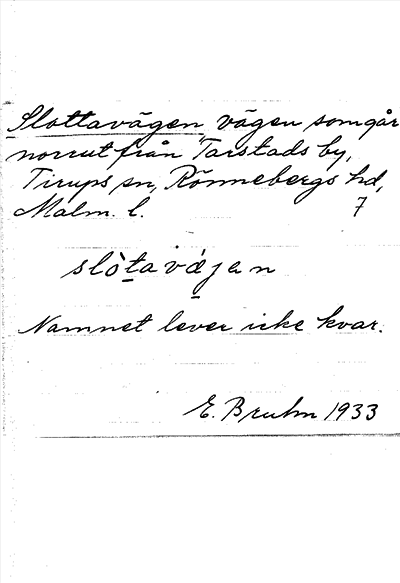 Slottavägen vägen som går
norrut från Tarstads by,
Tirups sn, Rönnebergs hd,
Malm. l. 7
slòta vá̱jen
Namnet lever icke kvar.
E. Bruhn 1933